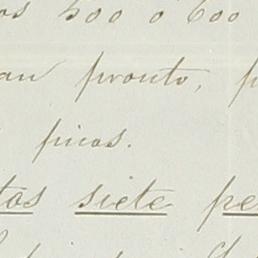 os 500 ó 600
an pronto, p
picas.
tas siete pe